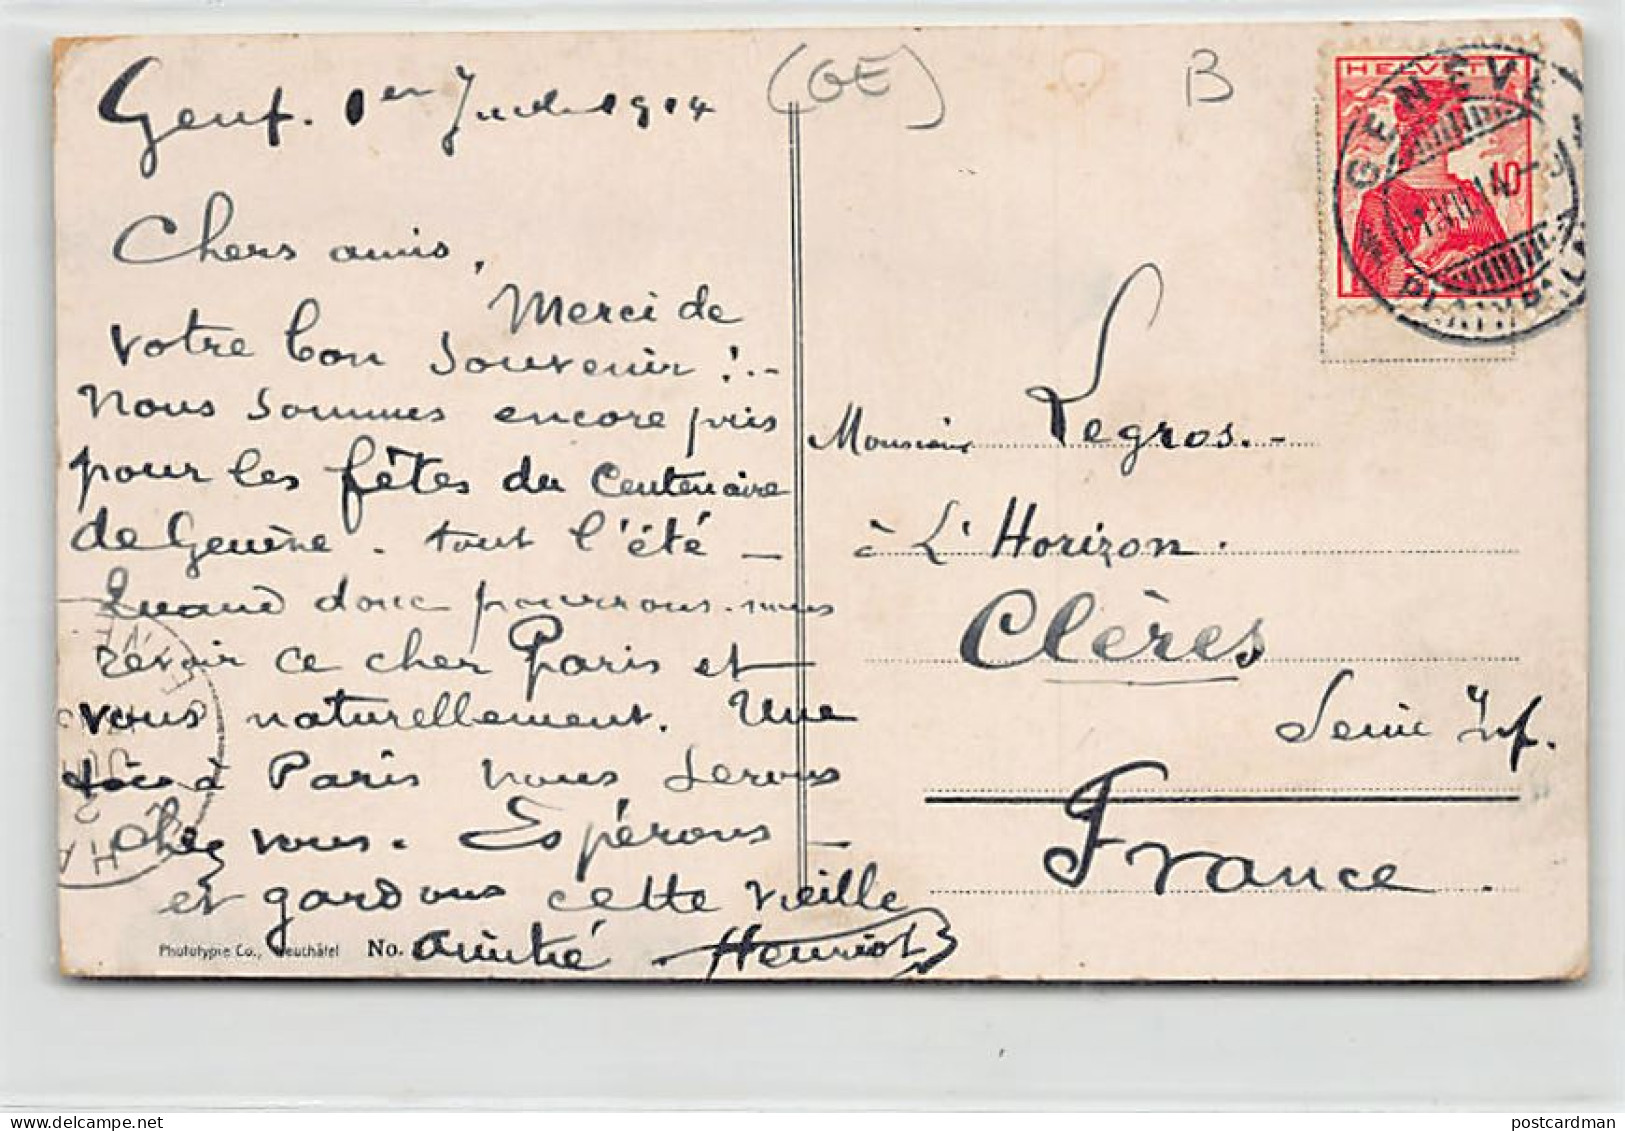 (GE)
B
Genf. 1er Juil 1914
Chers amis,
Merci de
votre bon souvenir !..
Nous sommes encore pris
pour les fêtes du Centenaire
de Genève. tout l'été –
Quand donc pourrons-nous
revoir ce cher Paris et
vous naturellement. Une
fois à Paris nous serons
chez vous. Espérons –
et gardons cette vieille
amitié. Henriot
Phototypie Co., Neuchâtel No.
HELVETIA
10
GENÈVE
1.VII.14
PLAINPALAIS
Monsieur Legros.-
à L'Horizon.
Clères
Seine Inf.
France.
postcardman